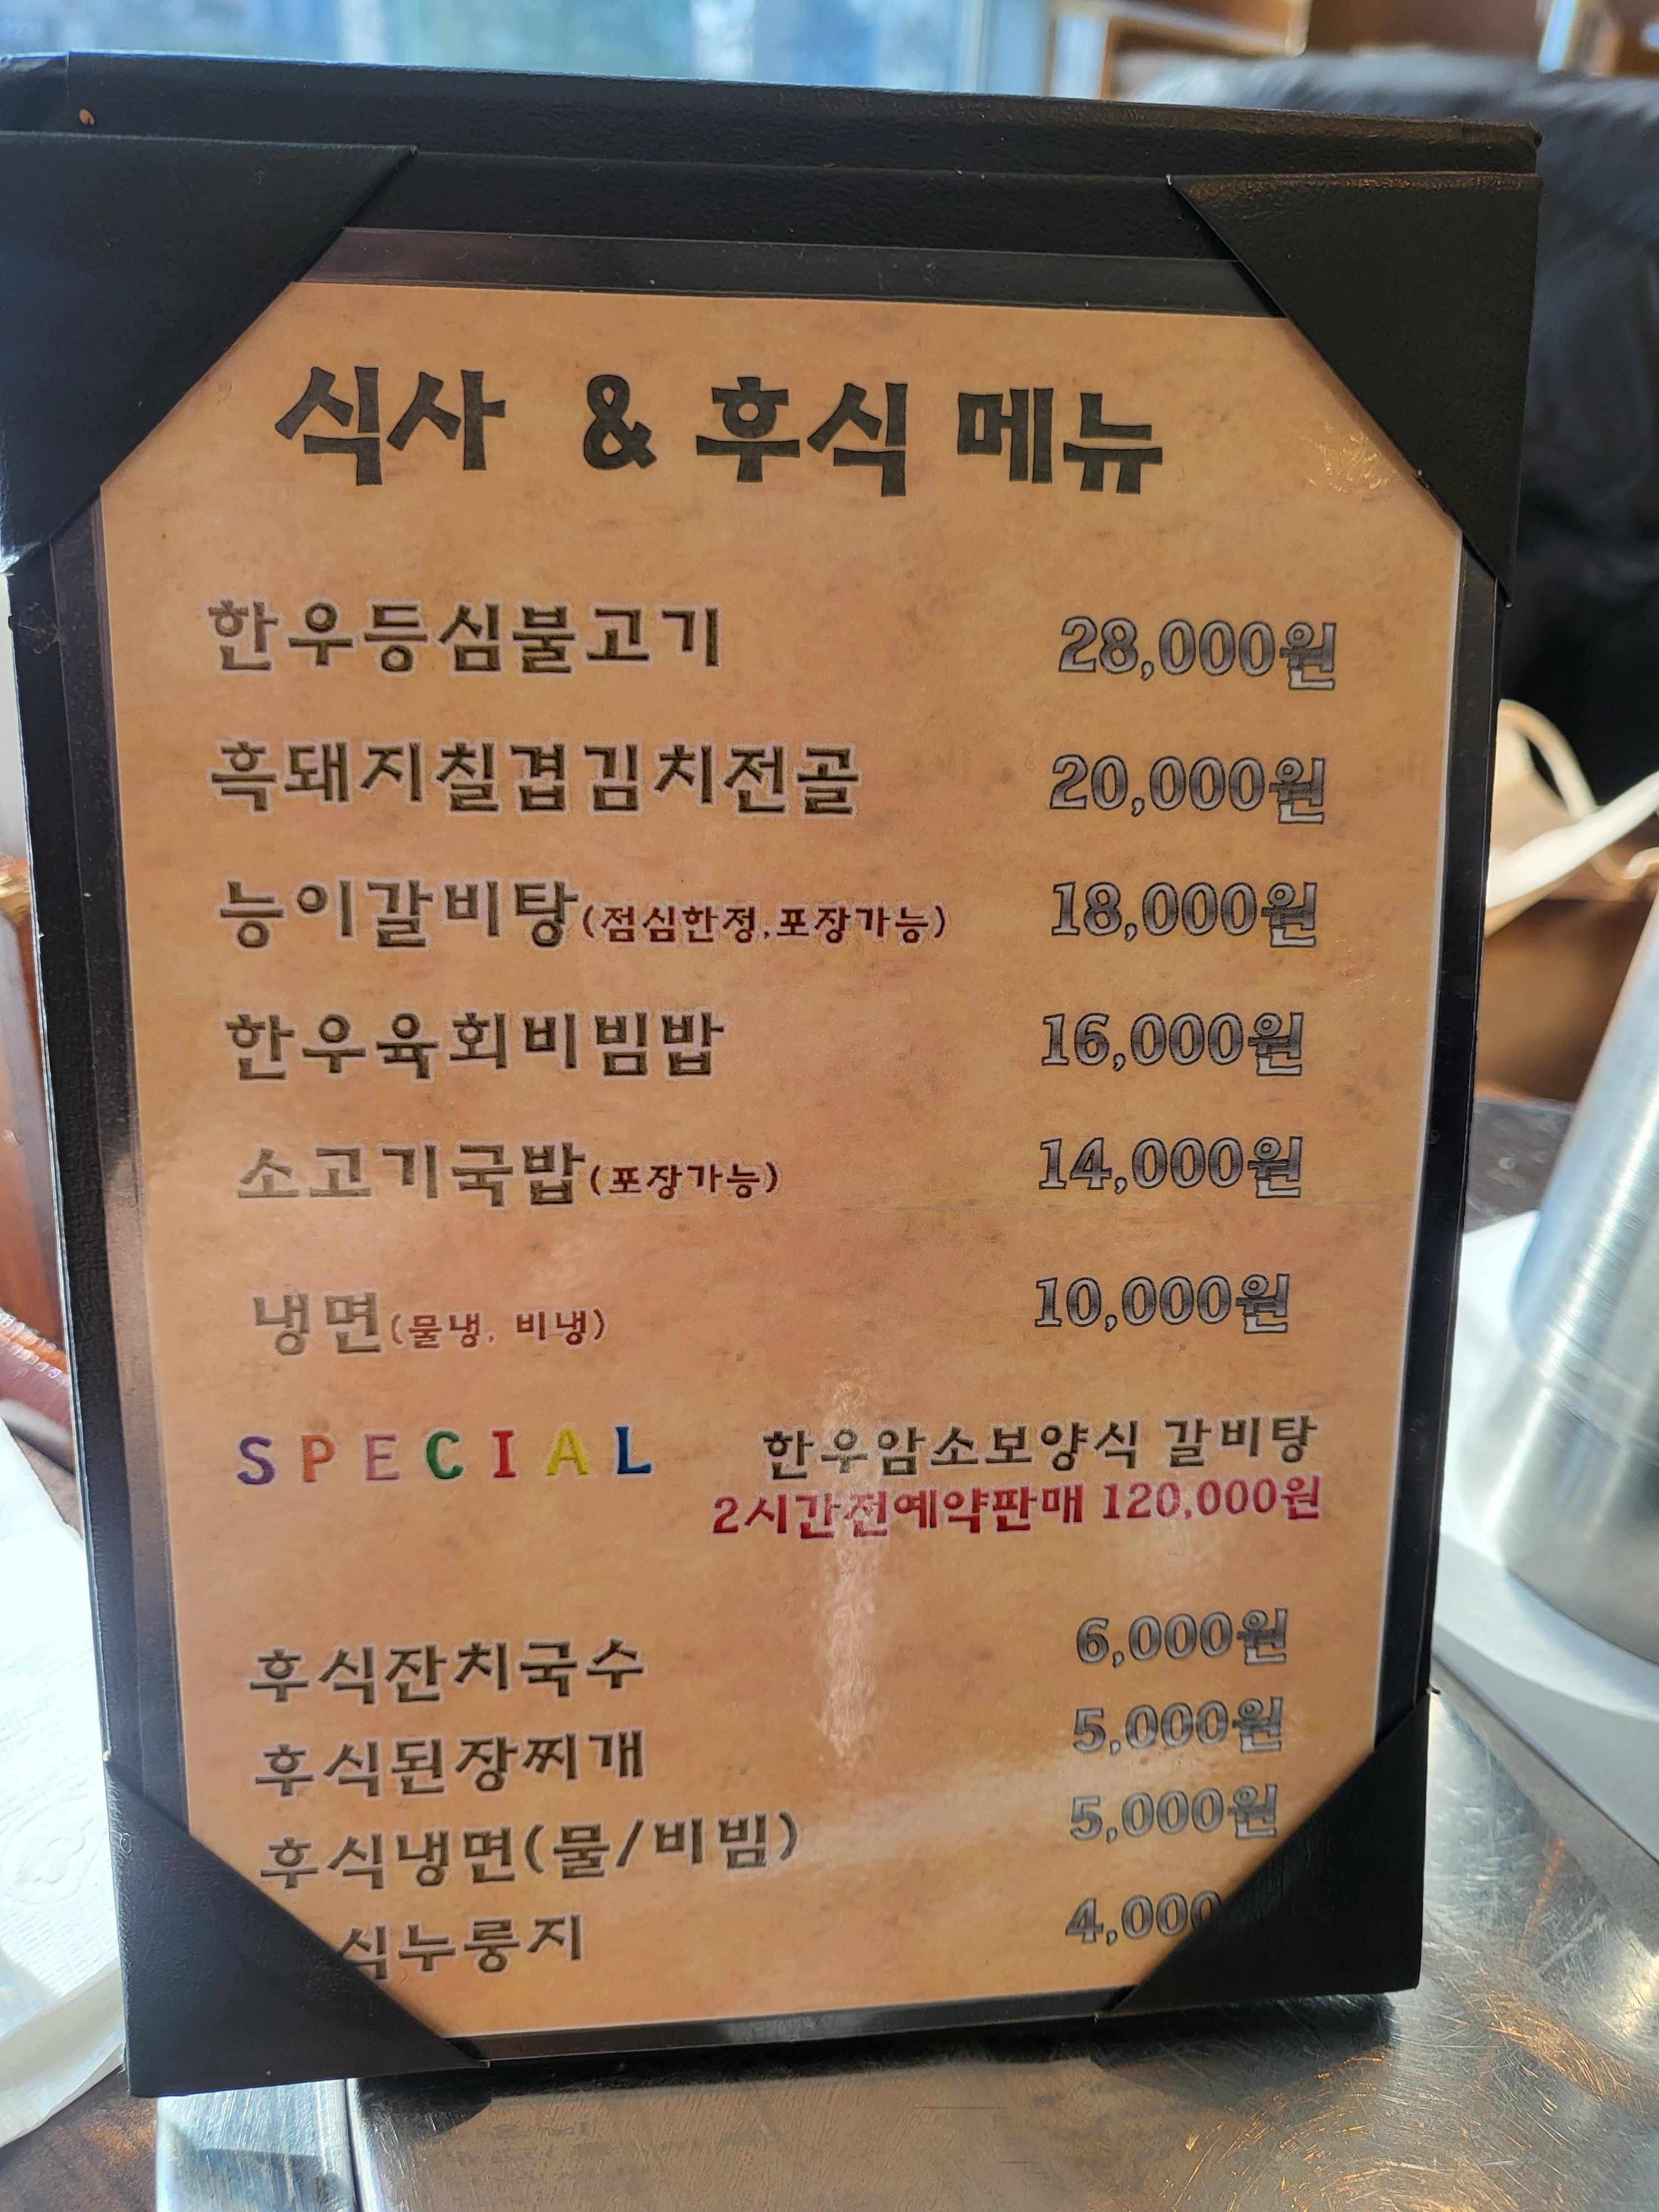 식사 & 후식 메뉴
한우등심불고기 28,000원
흑돼지칠겹김치전골 20,000원
능이갈비탕(점심한정,포장가능) 18,000원
한우육회비빔밥 16,000원
소고기국밥(포장가능) 14,000원
냉면(물냉, 비냉) 10,000원
SPECIAL 한우암소보양식 갈비탕
2시간전예약판매 120,000원
후식잔치국수 6,000원
후식된장찌개 5,000원
후식냉면(물/비빔) 5,000원
식누룽지 4,000